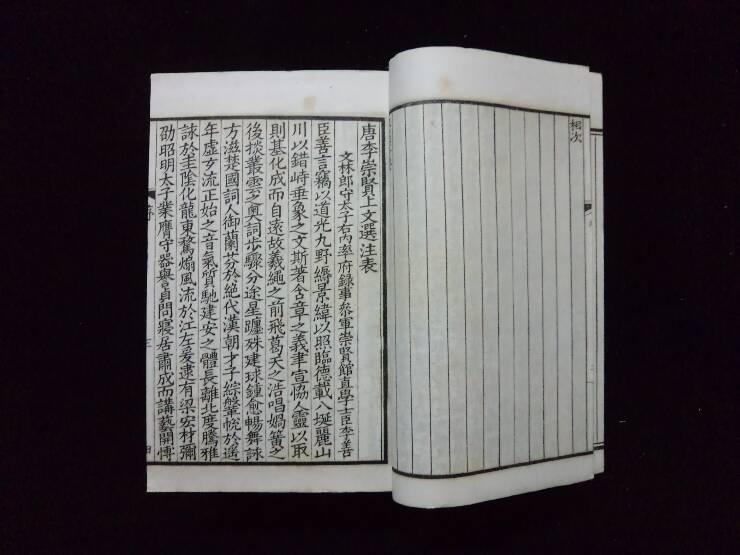 相次
唐李崇賢上文選注表
文林郎守太子右內率府録事參軍崇賢館直學士臣李善
臣善言竊以道光九野縟景緯以照臨德載八埏麗山
川以錯峙垂象之文斯著含章之義聿宣恊人靈以取
則基化成而自遠故羲繩之前飛葛天之浩唱媧簧之
後掞叢雲之奧詞步驟分途星躔殊建球鍾愈暢舞詠
方滋楚國詞人御蘭芬於絶代漢朝才子綜鞶帨於遥
年虛玄流正始之音氣質馳建安之體長離北度騰雅
詠於圭陰化龍東騖煽風流於江左爰逮有梁宏材彌
劭昭明太子業膺守器譽貞問寢居肅成而講藝開博
三